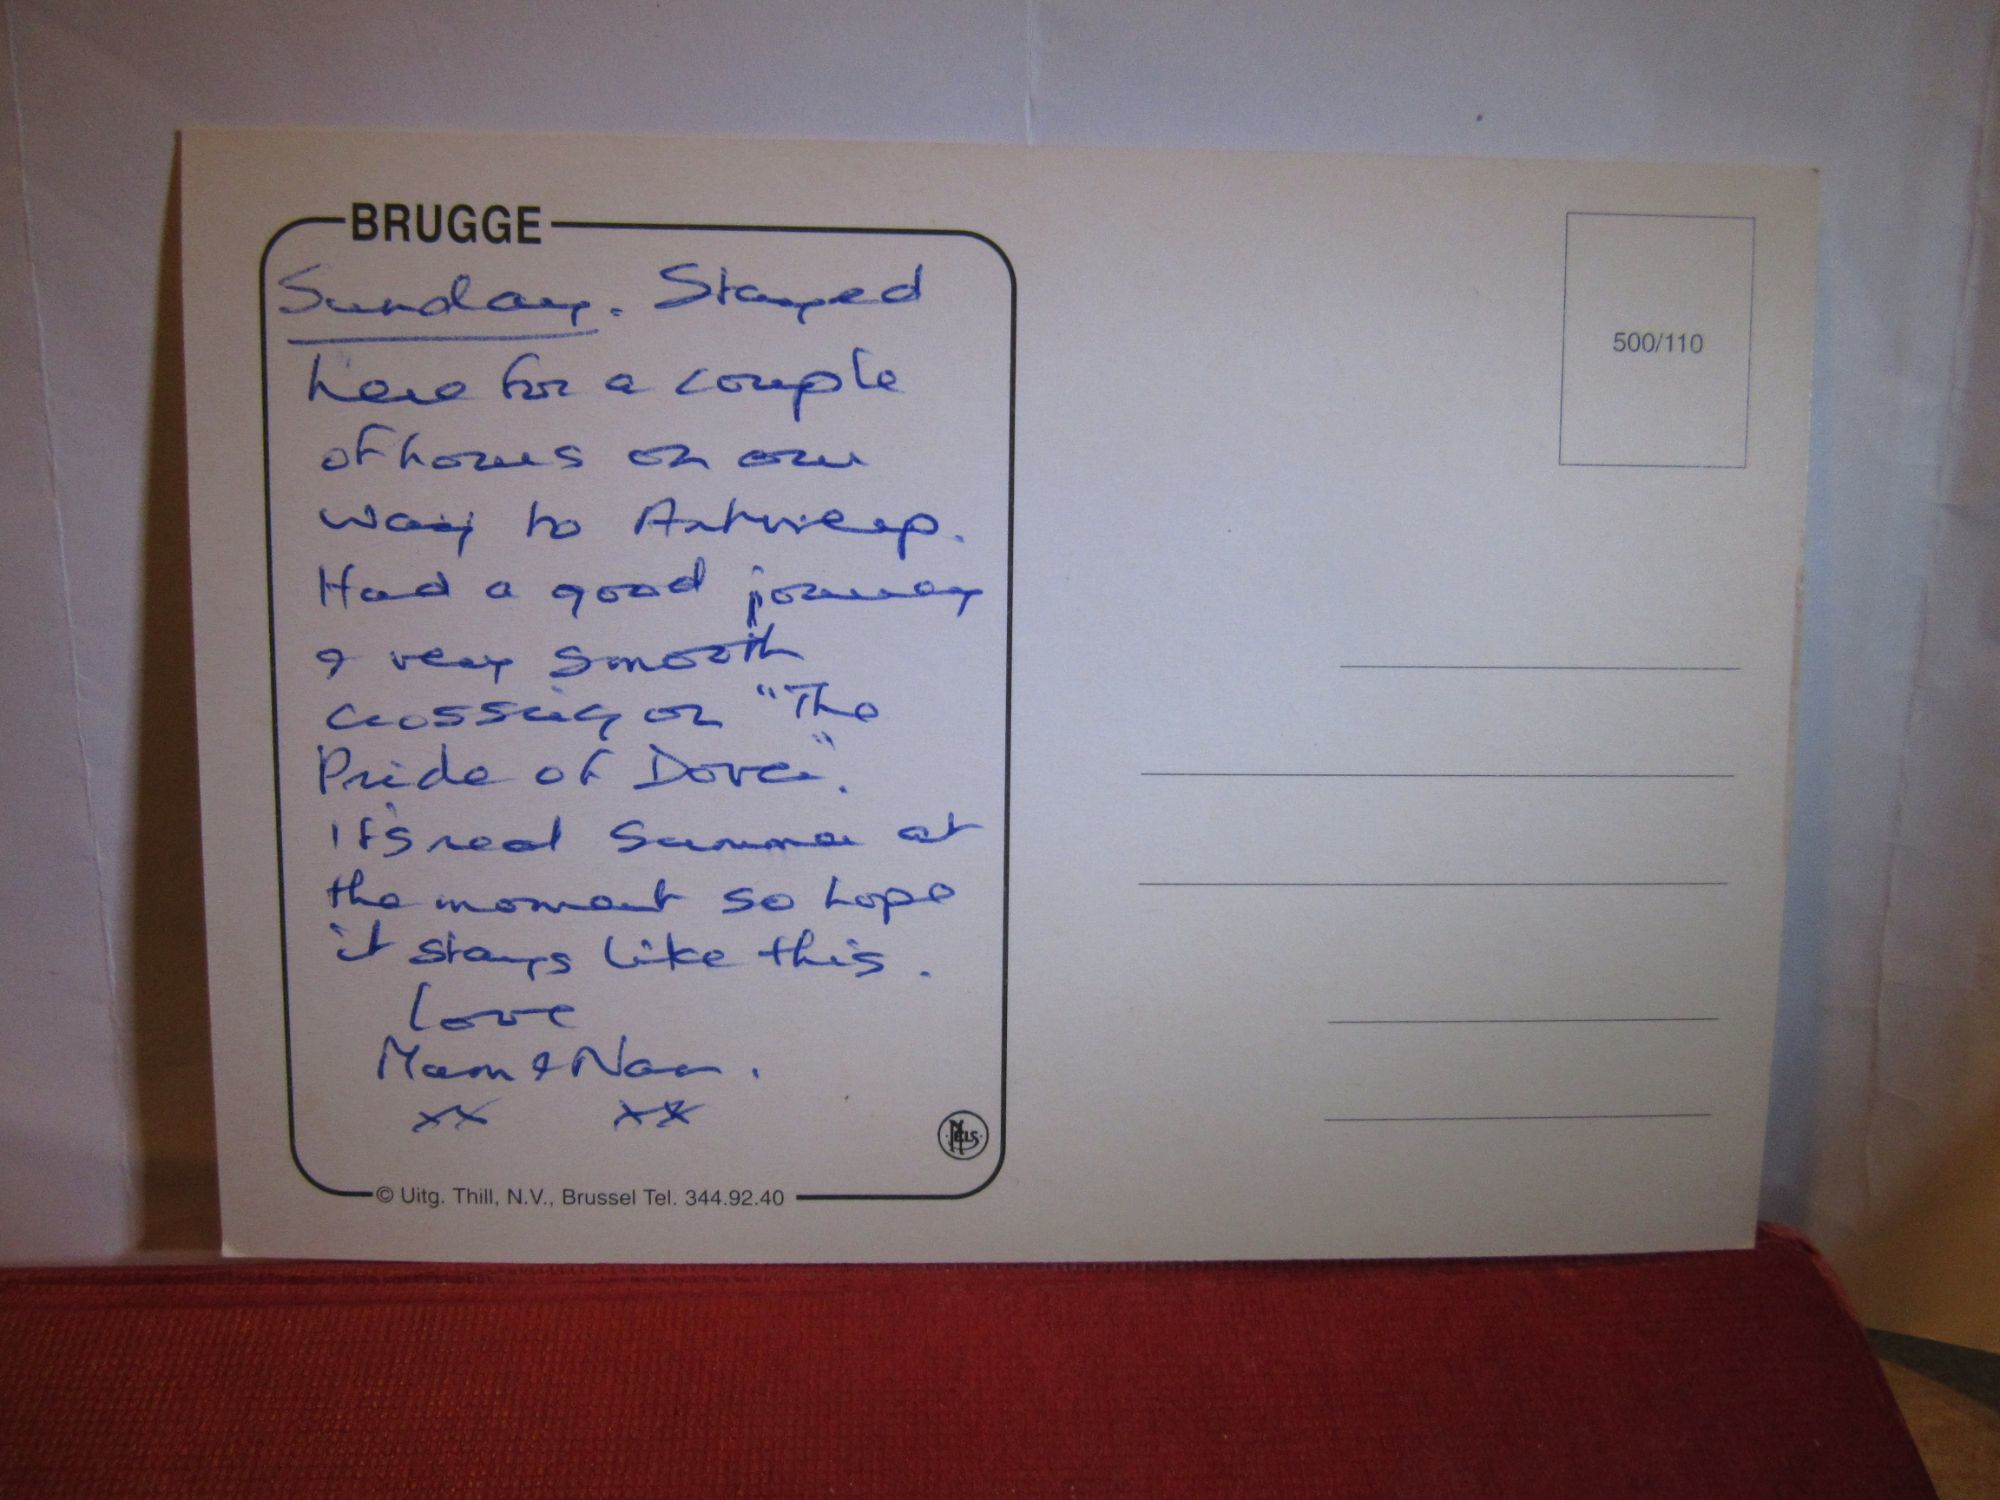 BRUGGE
Sunday. Stayed
here for a couple
of hours on our
way to Antwerp.
Had a good journey
& very smooth
crossing on "The
Pride of Dover".
It's real summer at
the moment so hope
it stays like this.
Love
Mam & Nan.
xx xx
NELS
© Uitg. Thill, N.V., Brussel Tel. 344.92.40
500/110